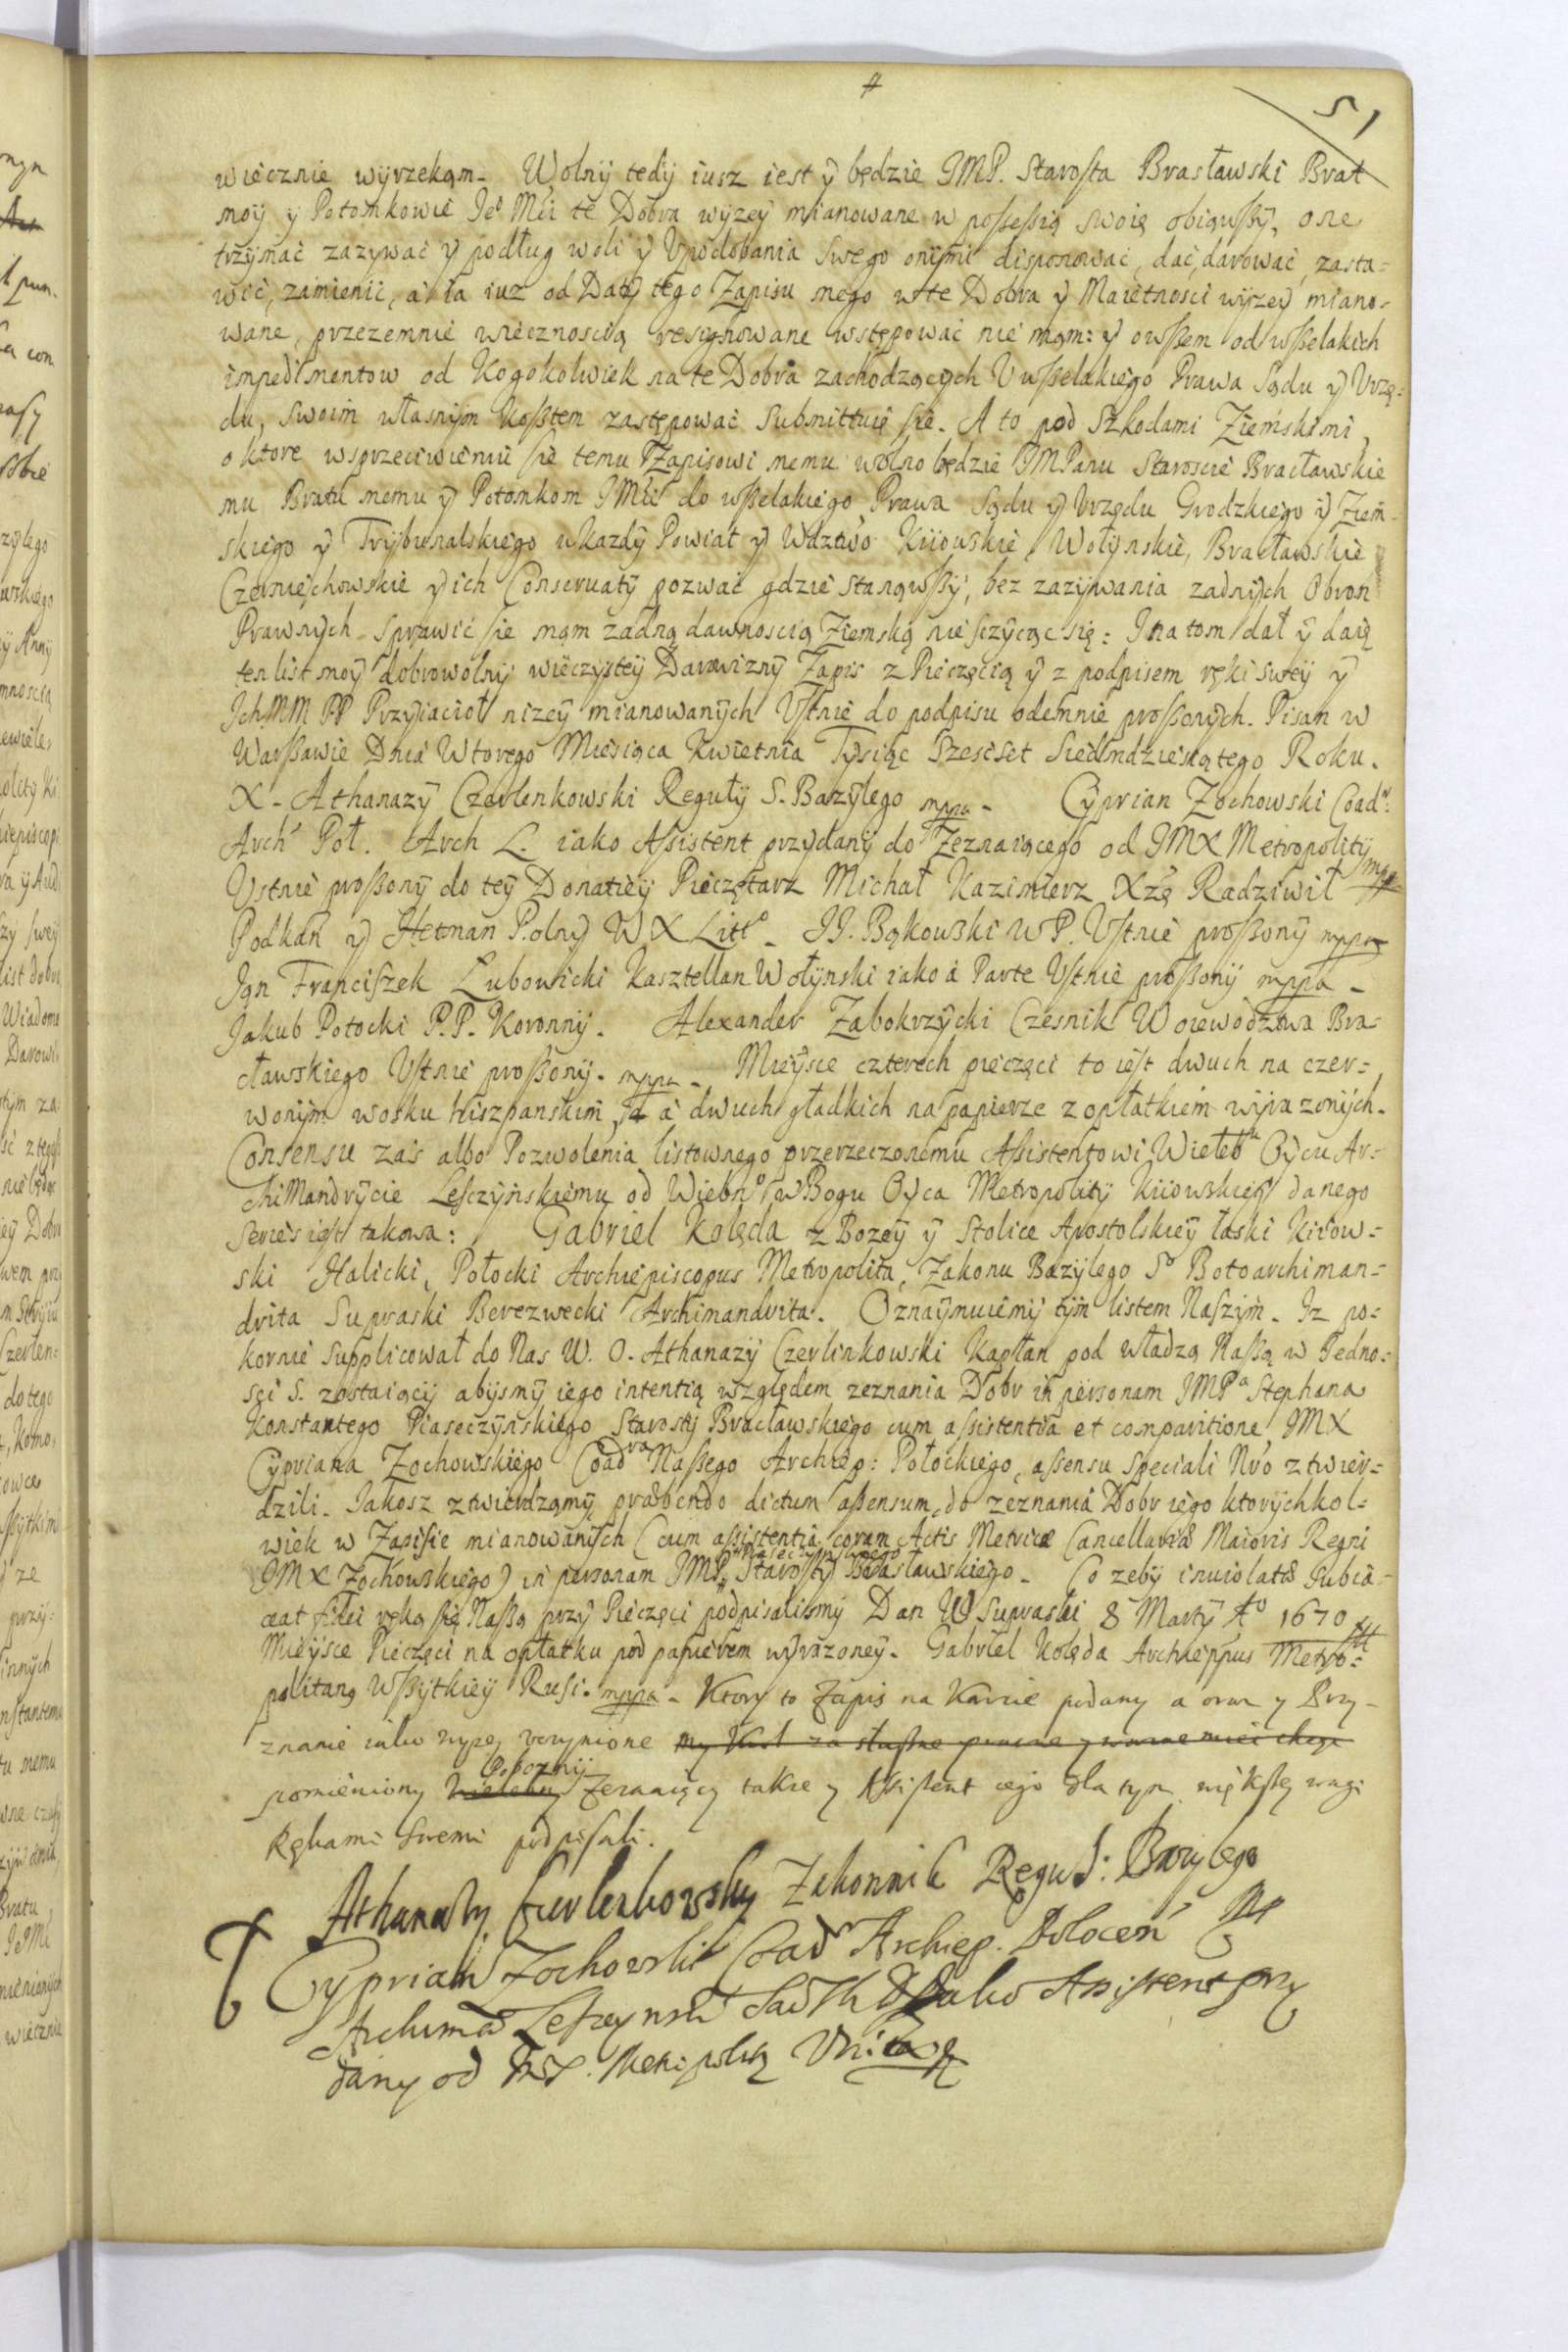 51
wiecznie wyrzekam. Wolny tedy iusz iest y będzie JMP. Starosta Brasławski Brat
moy y Potomkowie Je° Mci te Dobra wyzey mianowane w possessią swoię obiąwszy, one
trzymać zazywać y podług woli y Vpodobania Swego onymi disponować, dać, darować, zasta=
wić, zamienić, a ia iuz od Daty tego Zapisu mego w te Dobra y Maiętnosci wyzey miano=
wane, przezemnie wiecznoscią resignowane wstępować nie mam: y owszem od wszelakich
impedimentow od kogokolwiek na te Dobra zachodzących V wszelakiego Prawa Sądu y Vrzę=
du, swoim własnym kosztem zastępować Submittuię się. A to pod Szkodami Ziemskimi,
o ktore w sprzeciwieniu się temu Zapisowi memu wolno będzie JMPanu Staroscie Bracławskie
mu Bratu memu y Potomkom JMci do wszelakiego Prawa Sądu y Vrzędu Grodzkiego y Ziem=
skiego y Trybunalskiego w kazdy Powiat y Wdztwo Kiiowskie, Wołynskie, Bracławskie
Czernięchowskie y ich Conseruaty pozwać gdzie stanąwszy, bez zazywania zadnych Obron
Prawnych sprawić się mam zadną dawnoscią Ziemską nie szczycąc się: I na tom dał y daię
ten list moy dobrowolny wieczystey Darowizny Zapis z Pieczęcią y z podpisem ręki swey y
Ich MM PP Przyiacioł nizey mianowanych Vstnie do podpisu odemnie proszonych. Pisan w
Warszawie Dnia Wtorego Miesiąca Kwietnia Tysiąc Szescset Siedmdziesiątego Roku.
X. Athanazy Czerlenkowski Reguły S. Bazylego mppa. Cyprian Zochowski Coad^r:
Arch^s Poł. Arch L. iako Assistent przydany do Zeznaiącego od JMX Metropolity mpp
Vstnie proszony do tey Donatiey Pieczętarz Michał Kazimierz Xzę Radziwił
Podkan y Hetman Polny W X Litt° . JJ. Bąkowski W P. Vstnie proszony mppa
Jan Franciszek Lubowicki Kasztellan Wołynski iako a Parte Vstnie proszony mppa.
Jakub Potocki P.P. Koronny. Alexander Zabokrzycki Czesnik Woiewodztwa Bra=
cławskiego Vstnie proszony. mppa. Mieysce czterech pieczęci to iest dwuch na czer=
wonym wosku hiszpanskim, a dwuch gładkich na papierze z opłatkiem wyrazonych.
Consensu zaś albo Pozwolenia listownego przerzeczonemu Assistentowi Wieleb^u Oycu Ar=
chiMandrycie Leszczyńskiemu od Wiebn° w Bogu Oyca Metropolity Kiiowskieg° danego
Series iest takowa: Gabriel Kolęda z Bozey y Stolice Apostolskiey łaski Kiiow=
ski Halicki, Połocki Archiepiscopus Metropolita, Zakonu Bazylego S° Botoarchiman=
drita Supraski Berezwecki Archimandrita. Oznaymuiemy tym listem Naszym. Iz po=
kornie Supplicował do Nas W. O. Athanazy Czerlinkowski Kapłan pod władzą Naszą w Jedno=
sci S. zostaiący abysmy iego intentią względem zeznania Dobr in personam JMP^a Stephana
Konstantego Piaseczynskiego Starosty Bracławskiego cum assistentia et comparitione JMX
Cypriana Zochowskiego Coad^ra Naszego Archiep: Połockiego, assensu speciali Nr̃o ztwier=
dzili. Jakosz ztwierdzamy, præbendo dictum assensum do zeznania Dobr iego ktorychkol=
wiek w Zapisie mianowanych (cum assistentia coram Actis Metricæ Cancellariæ Maioris Regni
JMX Zochowskiego) in personam JMP^a Piaseczynskiego Starosty Bracławskiego. Co zeby inuiolatæ subia=
ceat fidei ręką się Naszą przy Pieczęci podpisalismy Dan W Supraslu 8 Marty A° 1670
Mieysce Pieczęci na opłatku pod papierem wyrazoney. Gabriel Kolęda Archieppus Metro=
politanq Wszytkiey Rusi. mppa. Ktory to Zapis na Karcie podany a oraz y Przy=
znanie iako wyzey vczynione
pomieniony Pobozny Zeznaiący takze y Assistent iego dla tym większey wagi
Rękami swemi podpisali.
Athanazy Czerlenkowsky Zakonnik Reguł S: Bazylego
Cyprian Zochowski Coad^r Archiep. Polocen^s mp
Archima Leszczynski Jako Assistent przy
dany od Metropolity